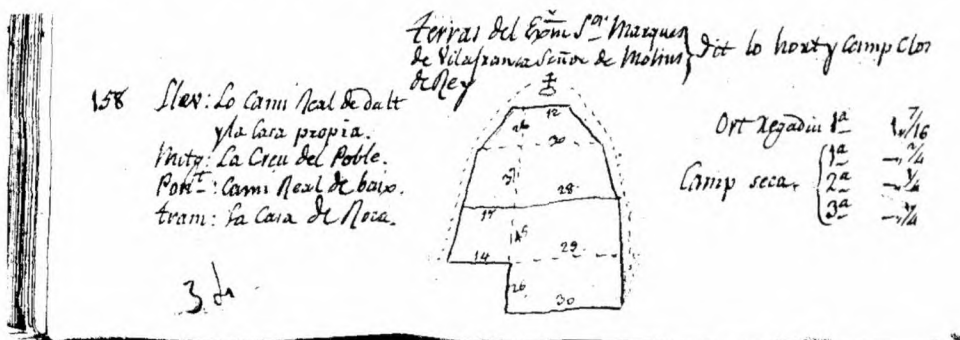 terras del Exm Sor Marques
de Vilafranca Señor de Molins
de Rey
dit lo hort y Camp Clos
158 Llev: Lo Cami Real de dalt
y la Casa propia.
Mitg: La Creu del Poble.
Pont: Cami Real de baix.
tram: La Casa de Roca.
Ort Regadiu 1a 1, 7/16
Camp seca,
1a —, 2/4
2a —, 1/4
3a —, 1/4
12
26
30
28
17
29
14
26
30
3